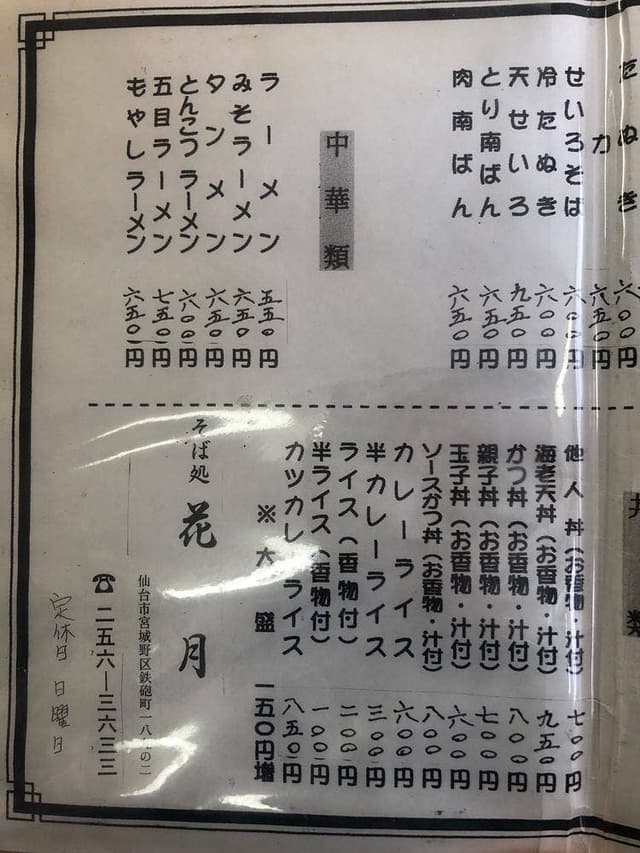 たぬき 六〇〇円
力 六五〇円
せいろそば 六〇〇円
冷たぬき 六〇〇円
天せいろ 九五〇円
とり南ばん 六五〇円
肉南ばん 六五〇円
中華類
ラーメン 五五〇円
みそラーメン 六五〇円
タンメン 六五〇円
とんこつラーメン 六〇〇円
五目ラーメン 七五〇円
もやしラーメン 六五〇円
丼類
他人丼（お香物・汁付） 七〇〇円
海老天丼（お香物・汁付） 九五〇円
かつ丼（お香物・汁付） 八〇〇円
親子丼（お香物・汁付） 七〇〇円
玉子丼（お香物・汁付） 六〇〇円
ソースかつ丼（お香物・汁付） 八〇〇円
カレーライス 六〇〇円
半カレーライス 三〇〇円
ライス（香物付） 二〇〇円
半ライス（香物付） 一〇〇円
カツカレーライス 八五〇円
※大盛 一五〇円増
そば処 花月
仙台市宮城野区鉄砲町一八七の二
☎二五六ー三六三三
定休日 日曜日